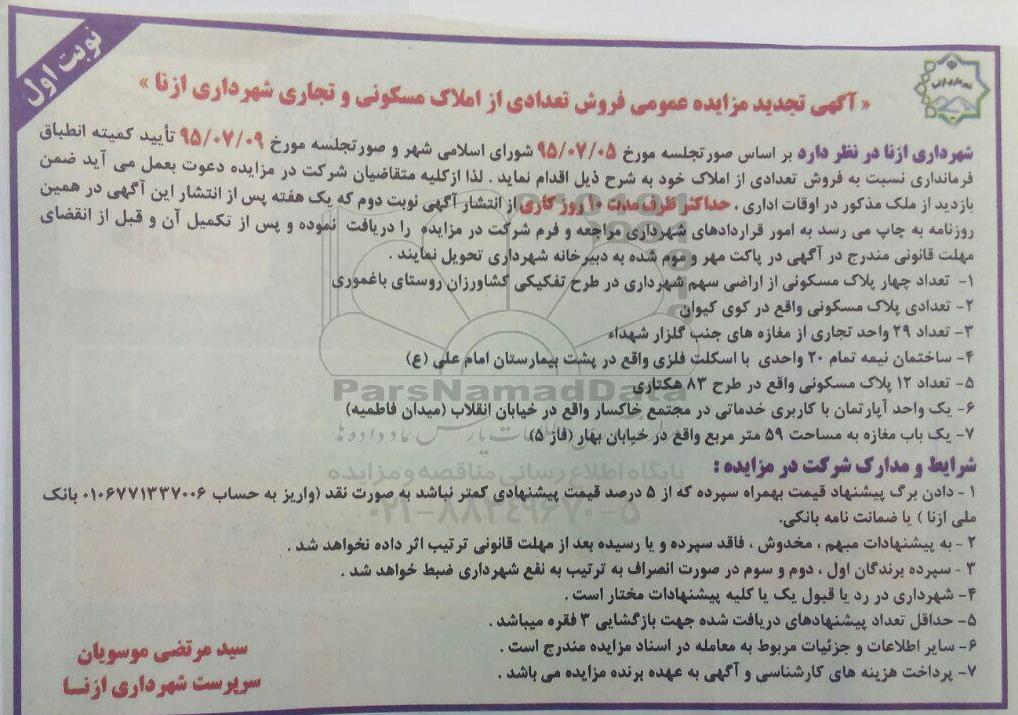 نوبت اول
« آگهی تجدید مزایده عمومی فروش تعدادی از املاک مسکونی و تجاری شهرداری ازنا »
شهرداری ازنا در نظر دارد بر اساس صورتجلسه مورخ ۹۵/۰۷/۰۵ شورای اسلامی شهر و صورتجلسه مورخ ۹۵/۰۷/۰۹ تأیید کمیته انطباق
فرمانداری نسبت به فروش تعدادی از املاک خود به شرح ذیل اقدام نماید . لذا ازکلیه متقاضیان شرکت در مزایده دعوت بعمل می آید ضمن
بازدید از ملک مذکور در اوقات اداری ، حداکثر ظرف مدت ۱۰ روز کاری از انتشار آگهی نوبت دوم که یک هفته پس از انتشار این آگهی در همین
روزنامه به چاپ می رسد به امور قراردادهای شهرداری مراجعه و فرم شرکت در مزایده را دریافت نموده و پس از تکمیل آن و قبل از انقضای
مهلت قانونی مندرج در آگهی در پاکت مهر و موم شده به دبیرخانه شهرداری تحویل نمایند .
۱- تعداد چهار پلاک مسکونی از اراضی سهم شهرداری در طرح تفکیکی کشاورزان روستای باغموری
۲- تعدادی پلاک مسکونی واقع در کوی کیوان
۳- تعداد ۲۹ واحد تجاری از مغازه های جنب گلزار شهداء
۴- ساختمان نیمه تمام ۲۰ واحدی با اسکلت فلزی واقع در پشت بیمارستان امام علی (ع)
۵- تعداد ۱۲ پلاک مسکونی واقع در طرح ۸۳ هکتاری
ParsNamadData
۶- یک واحد آپارتمان با کاربری خدماتی در مجتمع خاکسار واقع در خیابان انقلاب (میدان فاطمیه)
۷- یک باب مغازه به مساحت ۵۹ متر مربع واقع در خیابان بهار (فاز ۵)
پایگاه اطلاع رسانی مناقصه و مزایده
شرایط و مدارک شرکت در مزایده :
۱ - دادن برگ پیشنهاد قیمت بهمراه سپرده که از ۵ درصد قیمت پیشنهادی کمتر نباشد به صورت نقد (واریز به حساب ۰۱۰۶۷۷۱۳۳۷۰۰۶ بانک
ملی ازنا ) یا ضمانت نامه بانکی.
۰۲۱-۸۸۳۴۹۶۷۰-۵
۲ - به پیشنهادات مبهم ، مخدوش ، فاقد سپرده و یا رسیده بعد از مهلت قانونی ترتیب اثر داده نخواهد شد .
۳ - سپرده برندگان اول ، دوم و سوم در صورت انصراف به ترتیب به نفع شهرداری ضبط خواهد شد .
۴- شهرداری در رد یا قبول یک یا کلیه پیشنهادات مختار است .
۵- حداقل تعداد پیشنهادهای دریافت شده جهت بازگشایی ۳ فقره میباشد .
۶- سایر اطلاعات و جزئیات مربوط به معامله در اسناد مزایده مندرج است .
۷- پرداخت هزینه های کارشناسی و آگهی به عهده برنده مزایده می باشد .
سید مرتضی موسویان
سرپرست شهرداری ازنا